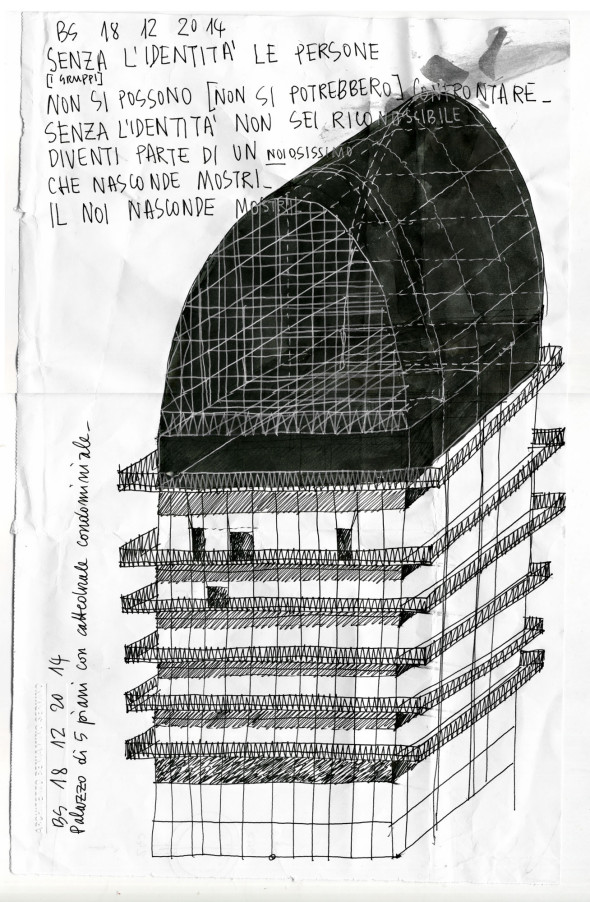 BS 18 12 2014
SENZA L'IDENTITA' LE PERSONE
[I GRUPPI]
NON SI POSSONO [NON SI POTREBBERO] CONFRONTARE_
SENZA L'IDENTITA' NON SEI RICONOSCIBILE
DIVENTI PARTE DI UN NOIOSISSIMO
CHE NASCONDE MOSTRI_
IL NOI NASCONDE MOSTRI_
BS 18 12 20 14
Palazzo di 5 piani con cattedrale condominiale_